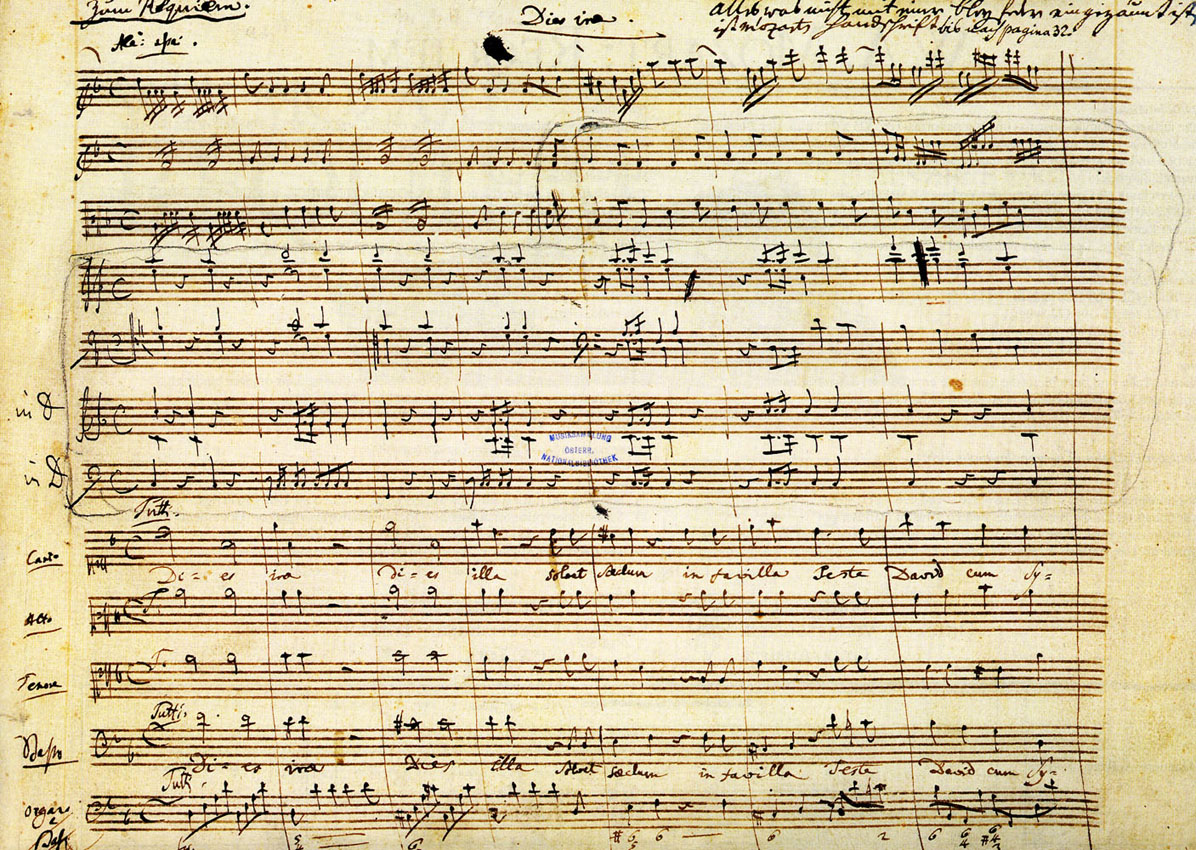 Zum Requiem.
Dies irae
Alles was nicht mit einer Bley feder eingezäunt ist
ist Mozarts Handschrift bis nach pagina 32.
All: assai.
in D
in D
MUSIKSAMMLUNG
ÖSTERR.
NATIONALBIBLIOTHEK
Tutti.
Canto
Di = es ira di = es illa solvet Sæclum in favilla Teste David cum Sy =
Alto
T.
Tenore
T.
Tutti.
Basso
Di = es ira Dies illa solvet sæclum in favilla Teste David cum Sy =
Tutti.
Organo
e
Bassi
6 6 6 2 6 6 6
4 4